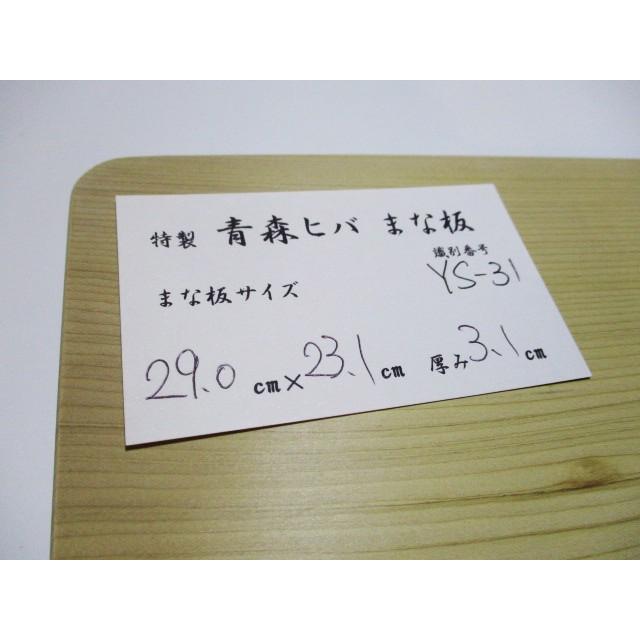 特製 青森ヒバ まな板
識別番号
YS-31
まな板サイズ
29.0 cm×23.1cm 厚み3.1cm